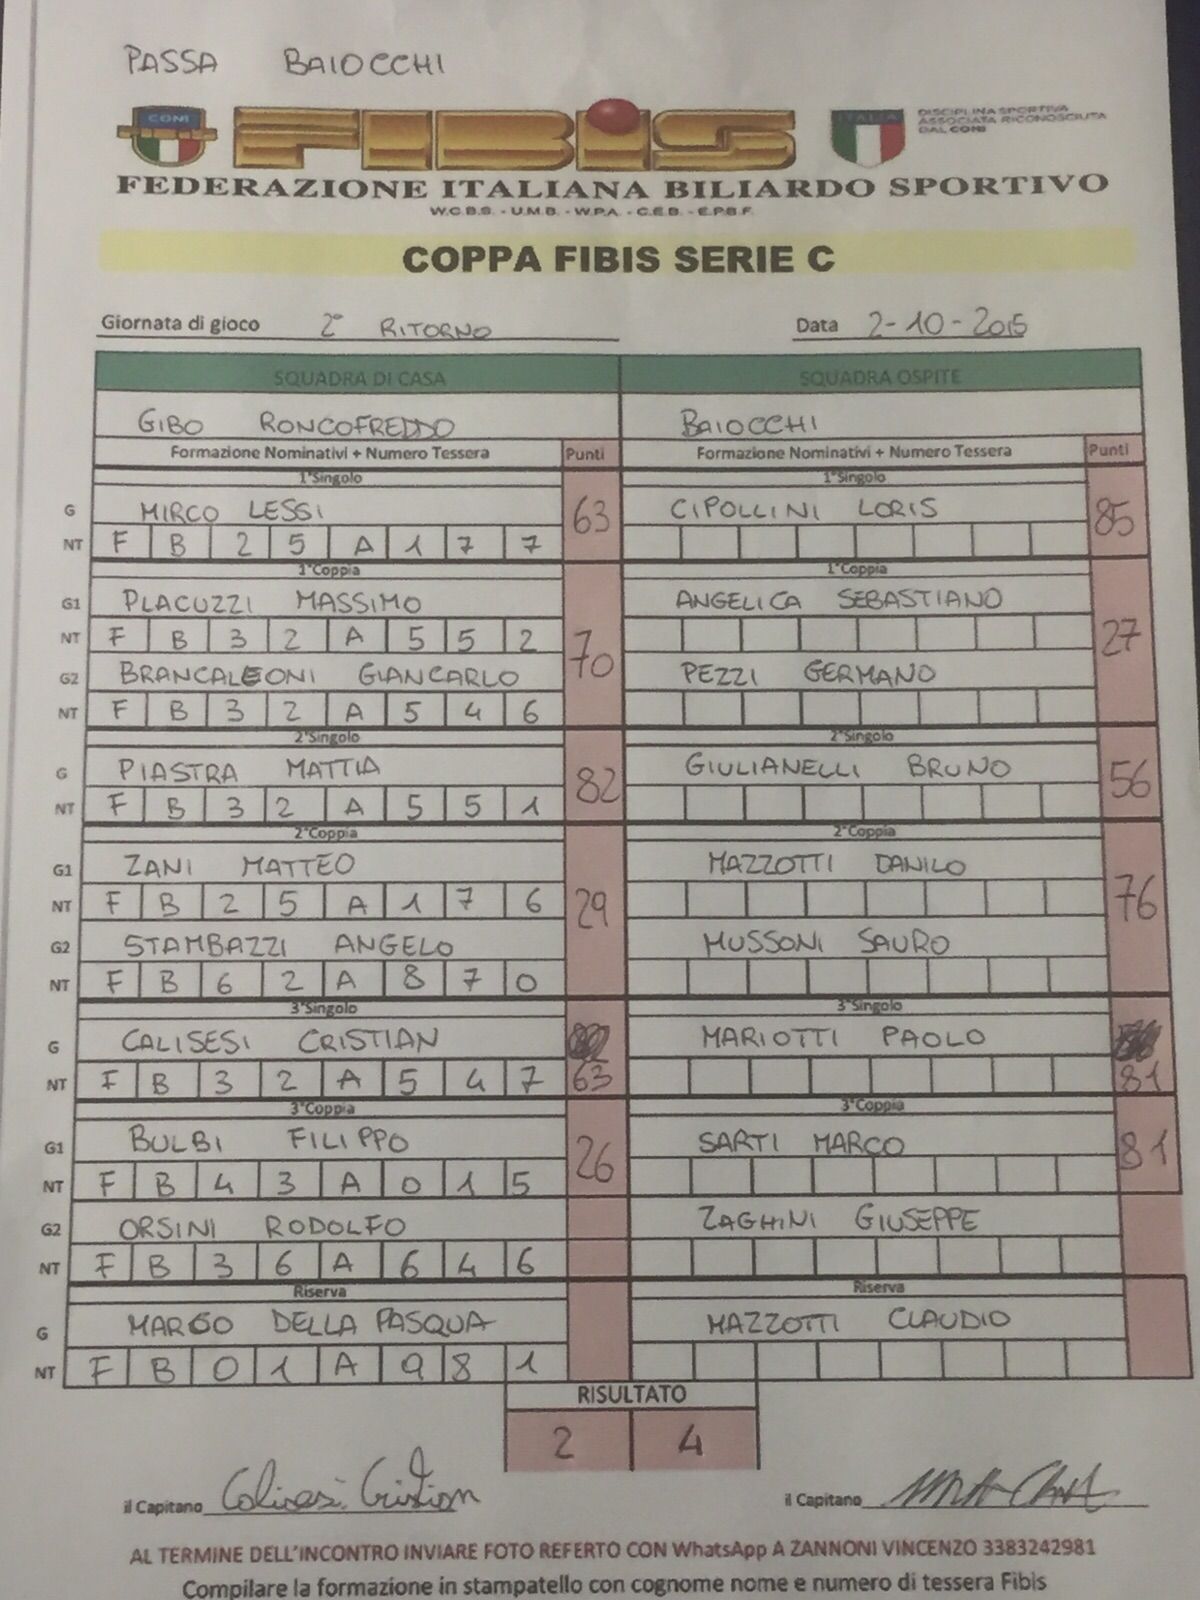 PASSA BAIOCCHI
CONI
FIBIS
ITALIA
DISCIPLINA SPORTIVA
ASSOCIATA RICONOSCIUTA
DAL CONI
FEDERAZIONE ITALIANA BILIARDO SPORTIVO
W.C.B.S. - U.M.B. - W.P.A. - C.E.B. - E.P.B.F.
COPPA FIBIS SERIE C
Giornata di gioco 2° RITORNO Data 2-10-2015
SQUADRA DI CASA SQUADRA OSPITE
GIBO RONCOFREDDO BAIOCCHI
Formazione Nominativi + Numero Tessera Punti Formazione Nominativi + Numero Tessera Punti
1°Singolo 1°Singolo
G MIRCO LESSI 63 CIPOLLINI LORIS 85
NT F B 2 5 A 1 7 7
1°Coppia 1°Coppia
G1 PLACUZZI MASSIMO ANGELICA SEBASTIANO
NT F B 3 2 A 5 5 2 70 27
G2 BRANCALEONI GIANCARLO PEZZI GERMANO
NT F B 3 2 A 5 4 6
2°Singolo 2°Singolo
G PIASTRA MATTIA 82 GIULIANELLI BRUNO 56
NT F B 3 2 A 5 5 1
2°Coppia 2°Coppia
G1 ZANI MATTEO MAZZOTTI DANILO
NT F B 2 5 A 1 7 6 29 76
G2 STAMBAZZI ANGELO MUSSONI SAURO
NT F B 6 2 A 8 7 0
3°Singolo 3°Singolo
G CALISESI CRISTIAN MARIOTTI PAOLO
NT F B 3 2 A 5 4 7 63 81
3°Coppia 3°Coppia
G1 BULBI FILIPPO 26 SARTI MARCO 81
NT F B 4 3 A 0 1 5
G2 ORSINI RODOLFO ZAGHINI GIUSEPPE
NT F B 3 6 A 6 4 6
Riserva Riserva
G MARCO DELLA PASQUA MAZZOTTI CLAUDIO
NT F B 0 1 A 9 8 1
RISULTATO
2 4
il Capitano Calisesi Cristian il Capitano
AL TERMINE DELL'INCONTRO INVIARE FOTO REFERTO CON WhatsApp A ZANNONI VINCENZO 3383242981
Compilare la formazione in stampatello con cognome nome e numero di tessera Fibis